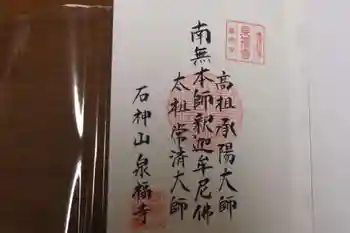 高祖承陽大師
南無本師釈迦牟尼佛
太祖常済大師
石神山泉福寺